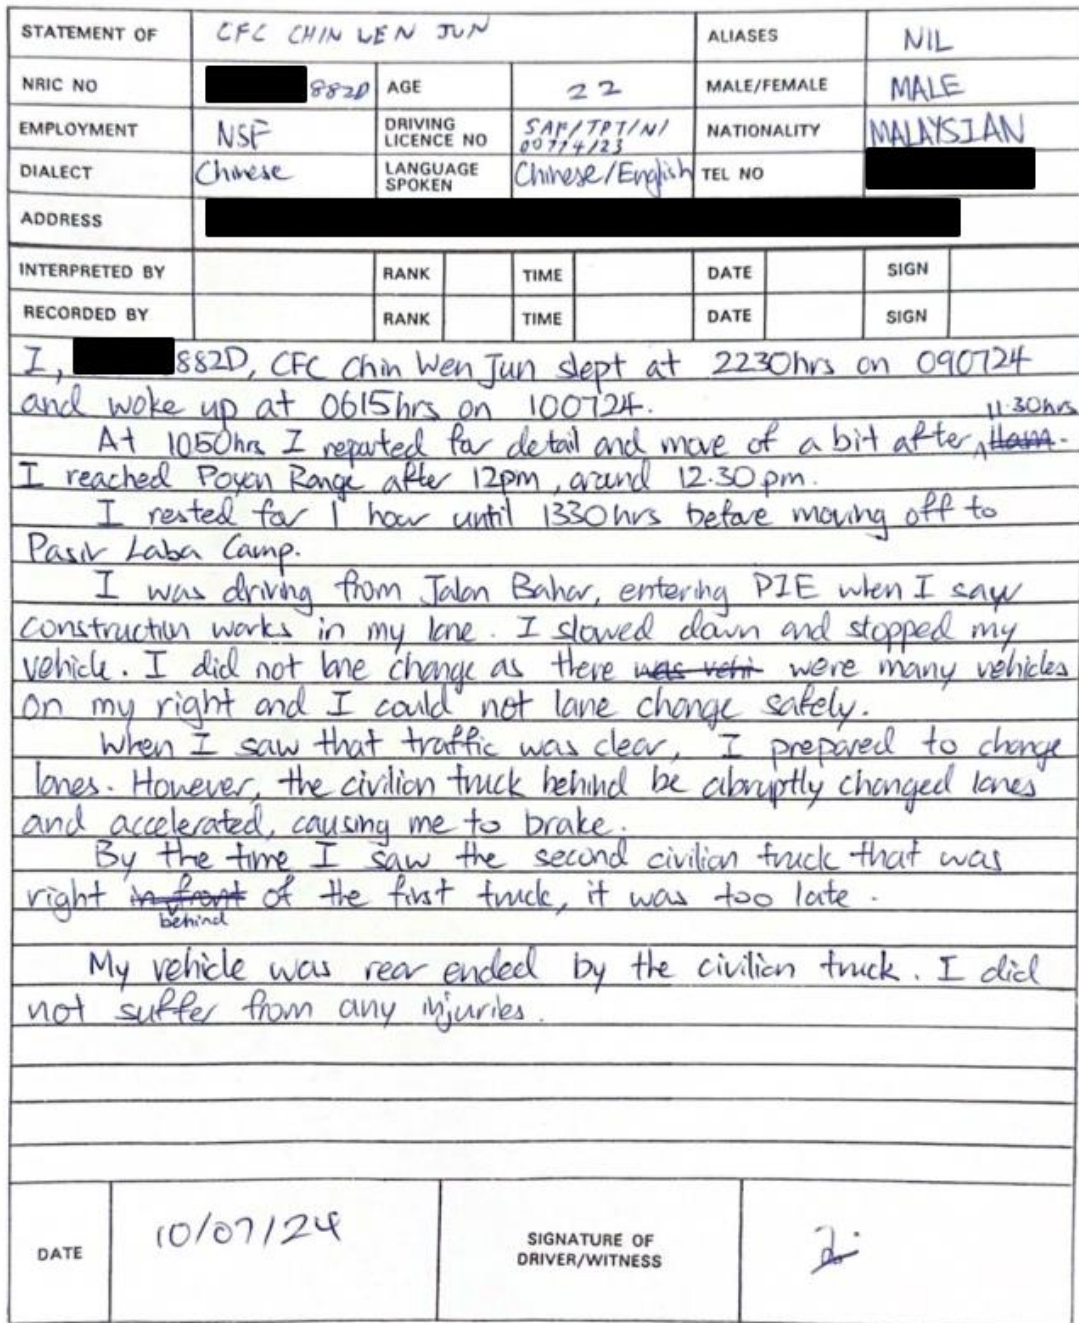 STATEMENT OF CFC CHIN WEN JUN ALIASES NIL
NRIC NO 882D AGE 22 MALE/FEMALE MALE
EMPLOYMENT NSF DRIVING LICENCE NO SAF/TPT/N/ 00774/23 NATIONALITY MALAYSIAN
DIALECT Chinese LANGUAGE SPOKEN Chinese/English TEL NO
ADDRESS
INTERPRETED BY RANK TIME DATE SIGN
RECORDED BY RANK TIME DATE SIGN
I, 882D, CFC Chin Wen Jun slept at 2230hrs on 090724
and woke up at 0615hrs on 100724.
At 1050hrs I reported for detail and move of a bit after 11.30hrs 11am.
I reached Poyan Range after 12pm, around 12.30pm.
I rested for 1 hour until 1330hrs before moving off to
Pasir Laba Camp.
I was driving from Jalan Bahar, entering PIE when I saw
construction works in my lane. I slowed down and stopped my
vehicle. I did not lane change as there was vehi were many vehicles
on my right and I could not lane change safely.
When I saw that traffic was clear, I prepared to change
lanes. However, the civilian truck behind be abruptly changed lanes
and accelerated, causing me to brake.
By the time I saw the second civilian truck that was
right in front of the first truck, it was too late.
behind
My vehicle was rear ended by the civilian truck. I did
not suffer from any injuries.
DATE 10/07/24 SIGNATURE OF DRIVER/WITNESS